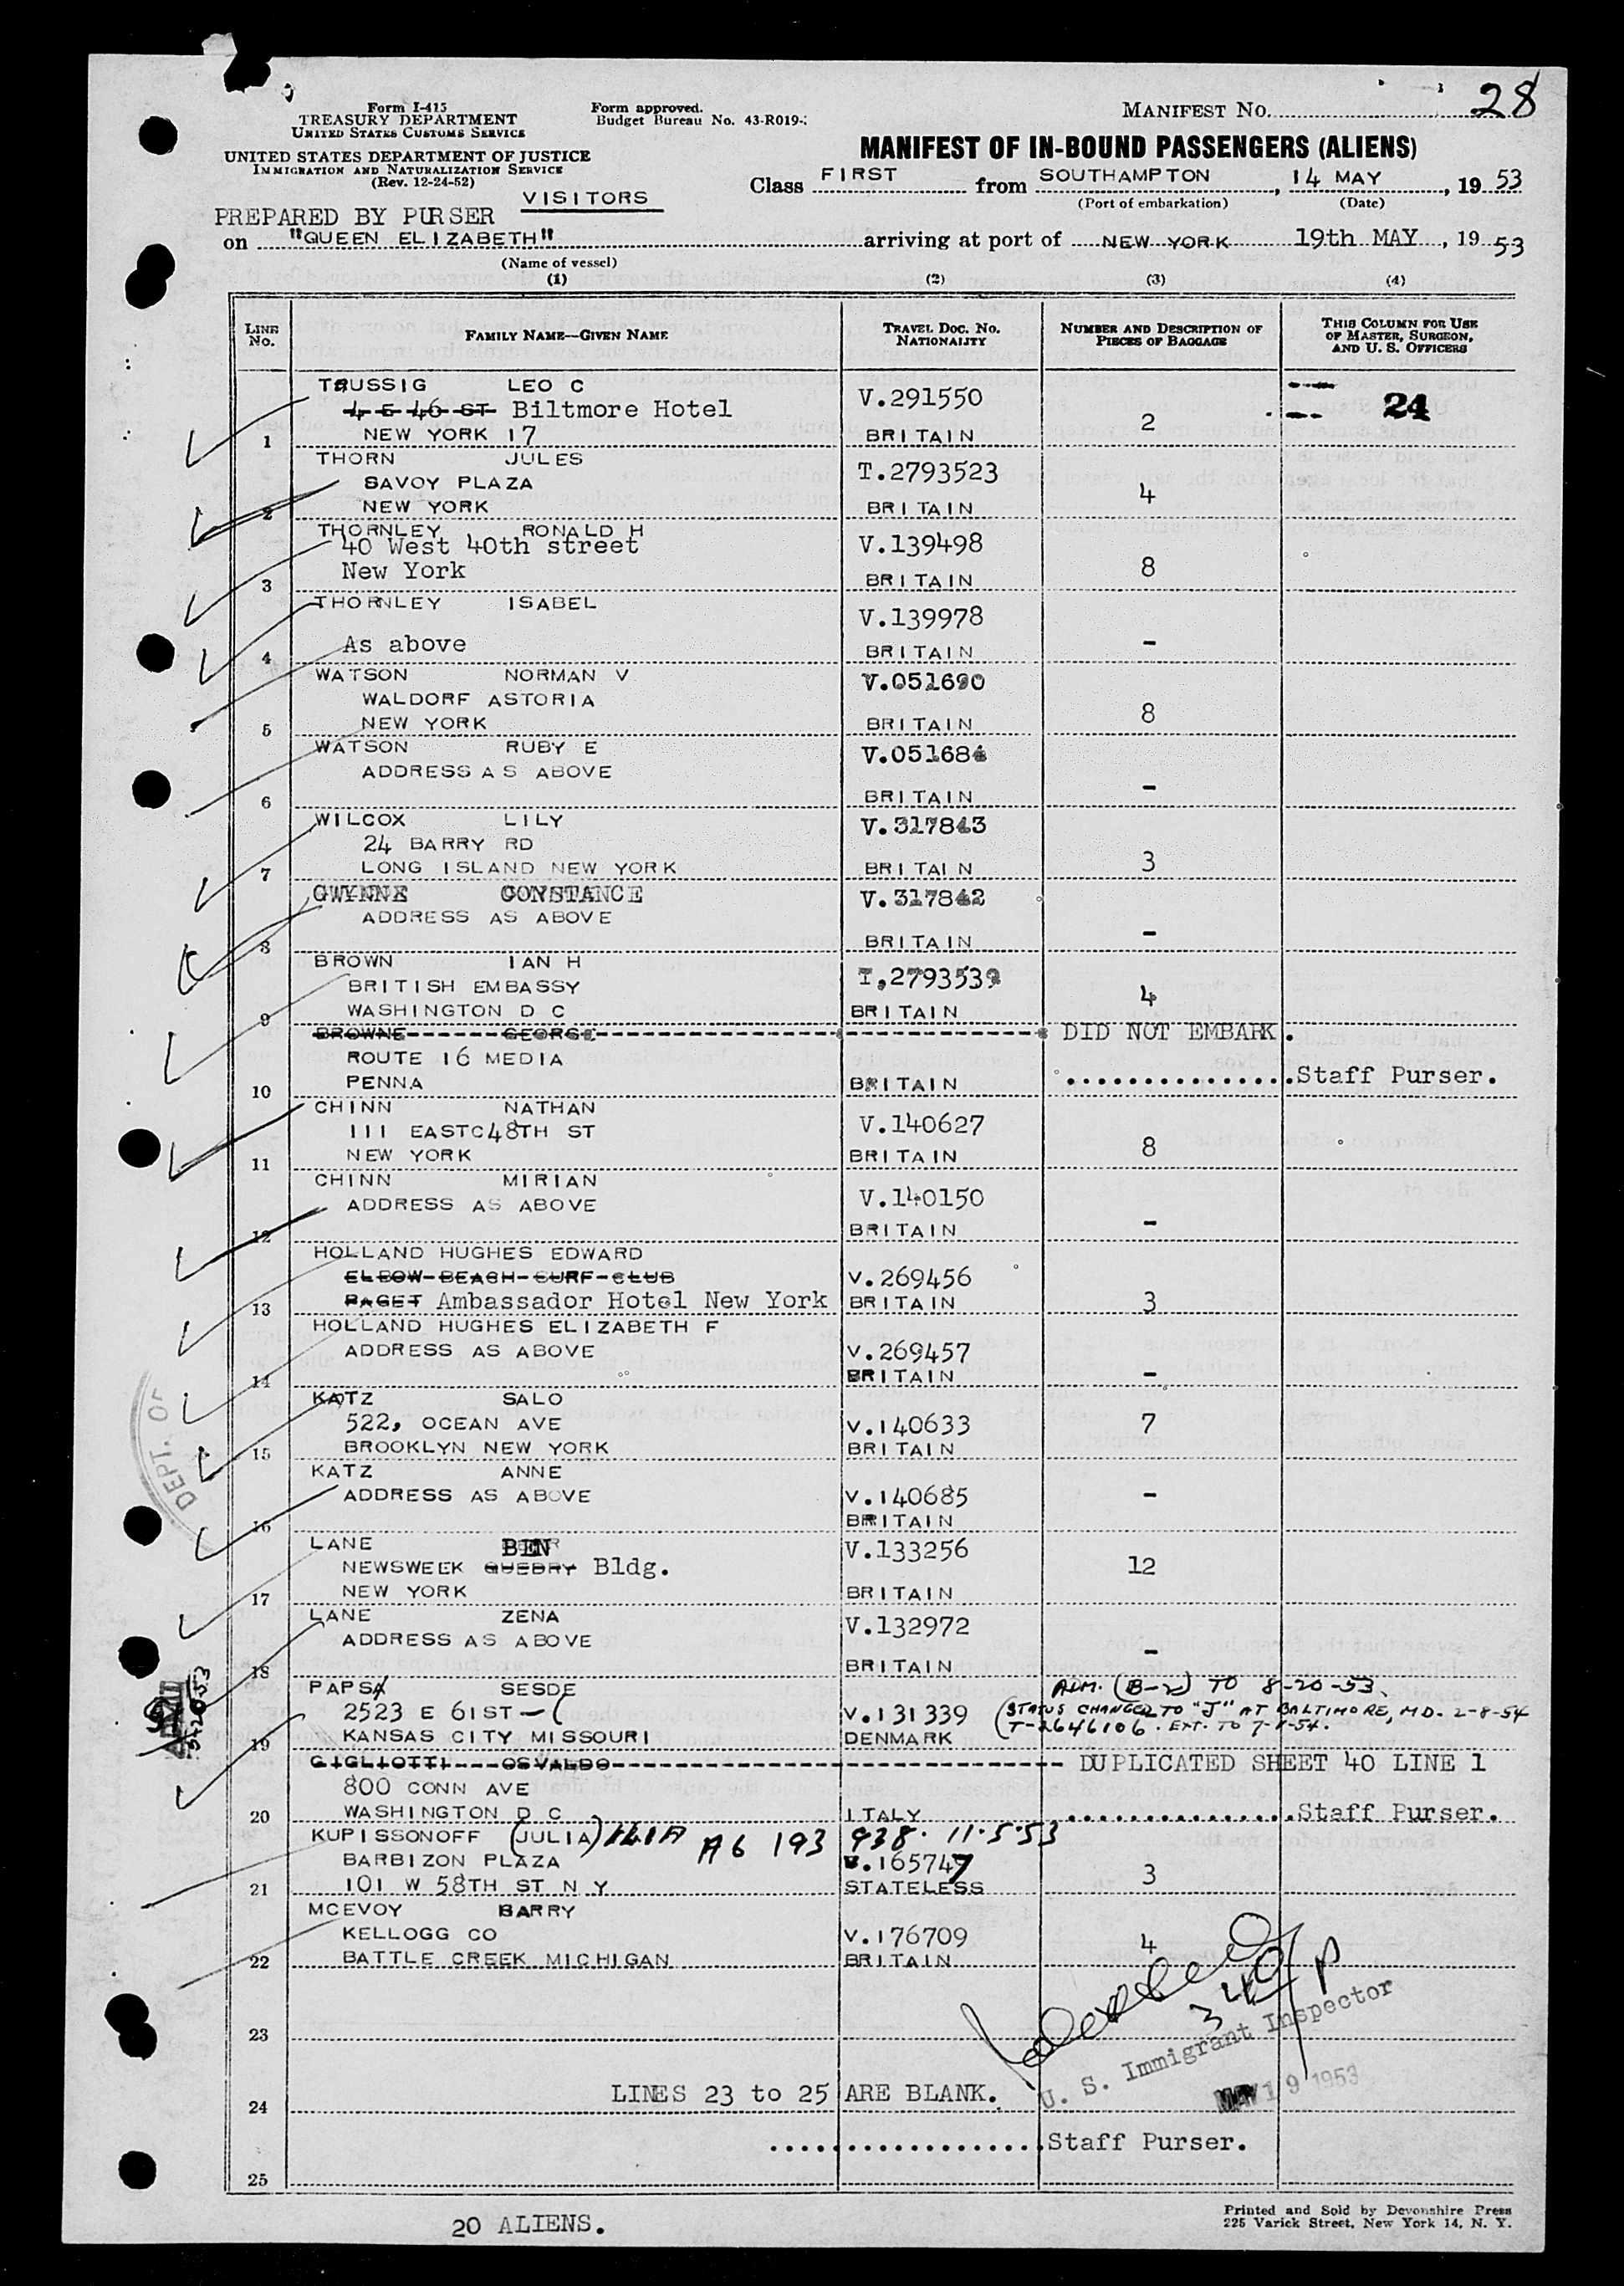 28
Form I-415
TREASURY DEPARTMENT
UNITED STATES CUSTOMS SERVICE
Form approved.
Budget Bureau No. 43-R019-
MANIFEST No.
UNITED STATES DEPARTMENT OF JUSTICE
IMMIGRATION AND NATURALIZATION SERVICE
(Rev. 12-24-52)
MANIFEST OF IN-BOUND PASSENGERS (ALIENS)
VISITORS
Class FIRST from SOUTHAMPTON, 14 MAY, 19 53
(Port of embarkation) (Date)
PREPARED BY PURSER
on "QUEEN ELIZABETH" arriving at port of NEW YORK 19th MAY, 19 53
(Name of vessel)
(1) (2) (3) (4)
LINE No. FAMILY NAME—GIVEN NAME TRAVEL DOC. No. NATIONALITY NUMBER AND DESCRIPTION OF PIECES OF BAGGAGE THIS COLUMN FOR USE OF MASTER, SURGEON, AND U. S. OFFICERS
TRUSSIG LEO C
4 E 46 ST Biltmore Hotel V.291550 24
1 NEW YORK 17 BRITAIN 2
THORN JULES T.2793523
SAVOY PLAZA 4
2 NEW YORK BRITAIN
THORNLEY RONALD H
40 West 40th street V.139498
3 New York BRITAIN 8
THORNLEY ISABEL V.139978
4 As above BRITAIN -
WATSON NORMAN V V.051690
WALDORF ASTORIA 8
5 NEW YORK BRITAIN
WATSON RUBY E V.051684
ADDRESS AS ABOVE
6 BRITAIN -
WILCOX LILY V.317843
24 BARRY RD
7 LONG ISLAND NEW YORK BRITAIN 3
GWYNNE CONSTANCE V.317842
ADDRESS AS ABOVE
8 BRITAIN -
BROWN IAN H T.2793539
BRITISH EMBASSY 4
9 WASHINGTON D C BRITAIN
BROWNE GEORGE DID NOT EMBARK.
ROUTE 16 MEDIA
10 PENNA BRITAIN ...............Staff Purser.
CHINN NATHAN V.140627
111 EASTC48TH ST 8
11 NEW YORK BRITAIN
CHINN MIRIAN V.140150
ADDRESS AS ABOVE
12 BRITAIN -
HOLLAND HUGHES EDWARD
ELBOW-BEACH-SURF-CLUB V.269456
13 PAGET Ambassador Hotel New York BRITAIN 3
HOLLAND HUGHES ELIZABETH F
ADDRESS AS ABOVE V.269457
14 BRITAIN -
KATZ SALO
522, OCEAN AVE V.140633 7
15 BROOKLYN NEW YORK BRITAIN
KATZ ANNE
ADDRESS AS ABOVE V.140685 -
16 BRITAIN
LANE BEN V.133256
NEWSWEEK Bldg. 12
17 NEW YORK BRITAIN
LANE ZENA V.132972
ADDRESS AS ABOVE
18 BRITAIN -
PAPSA SESDE ADM. (B-2) TO 8-20-53.
2523 E 61ST V.131339 (STATUS CHANGED TO "J" AT BALTIMORE, MD. 2-8-54
T-2646106. EXT. TO 7-1-54.
19 KANSAS CITY MISSOURI DENMARK
GIGLIOTTI OSVALDO DUPLICATED SHEET 40 LINE 1
800 CONN AVE
20 WASHINGTON D C ITALY ...............Staff Purser.
KUPISSONOFF (JULIA) A6 193 938. 11.5.53
BARBIZON PLAZA V.165747 3
21 101 W 58TH ST N Y STATELESS
MCEVOY BARRY
KELLOGG CO V.176709 4
22 BATTLE CREEK MICHIGAN BRITAIN
340 P
U. S. Immigrant Inspector
MAY 19 1953
23
LINES 23 to 25 ARE BLANK.
24
..................Staff Purser.
25
20 ALIENS.
Printed and Sold by Devonshire Press
225 Varick Street, New York 14, N. Y.
DEPT. OF